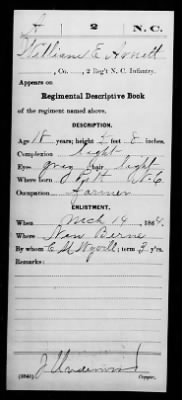 A 2 N.C.
William E Arnett
, Co. , 2 Reg't N. C. Infantry.
Appears on
Regimental Descriptive Book
of the regiment named above.
DESCRIPTION.
Age 18 years; height 5 feet 8 inches.
Complexion light
Eyes grey; hair light
Where born Pitt N.C.
Occupation Farmer
ENLISTMENT.
When Mch 14, 1864.
Where New Berne
By whom E M ; term 3 y'rs.
Remarks:
J Underwood
Copyist.